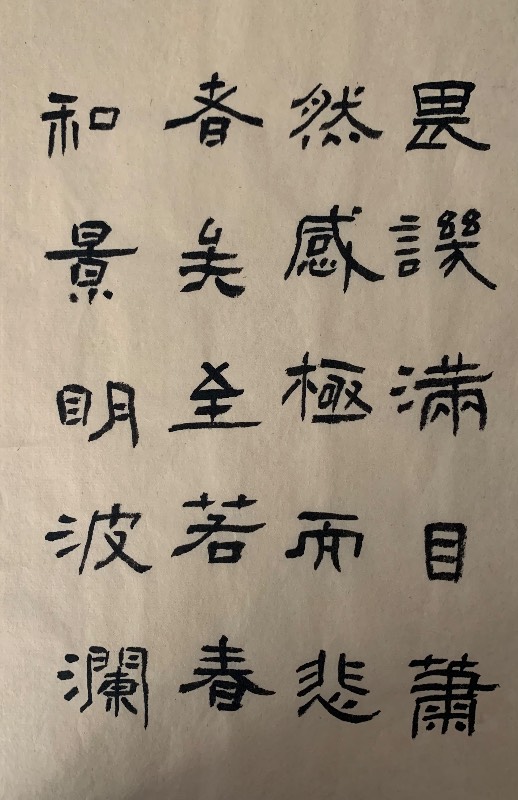 畏譏滿目蕭
然感極而悲
者矣至若春
和景明波瀾